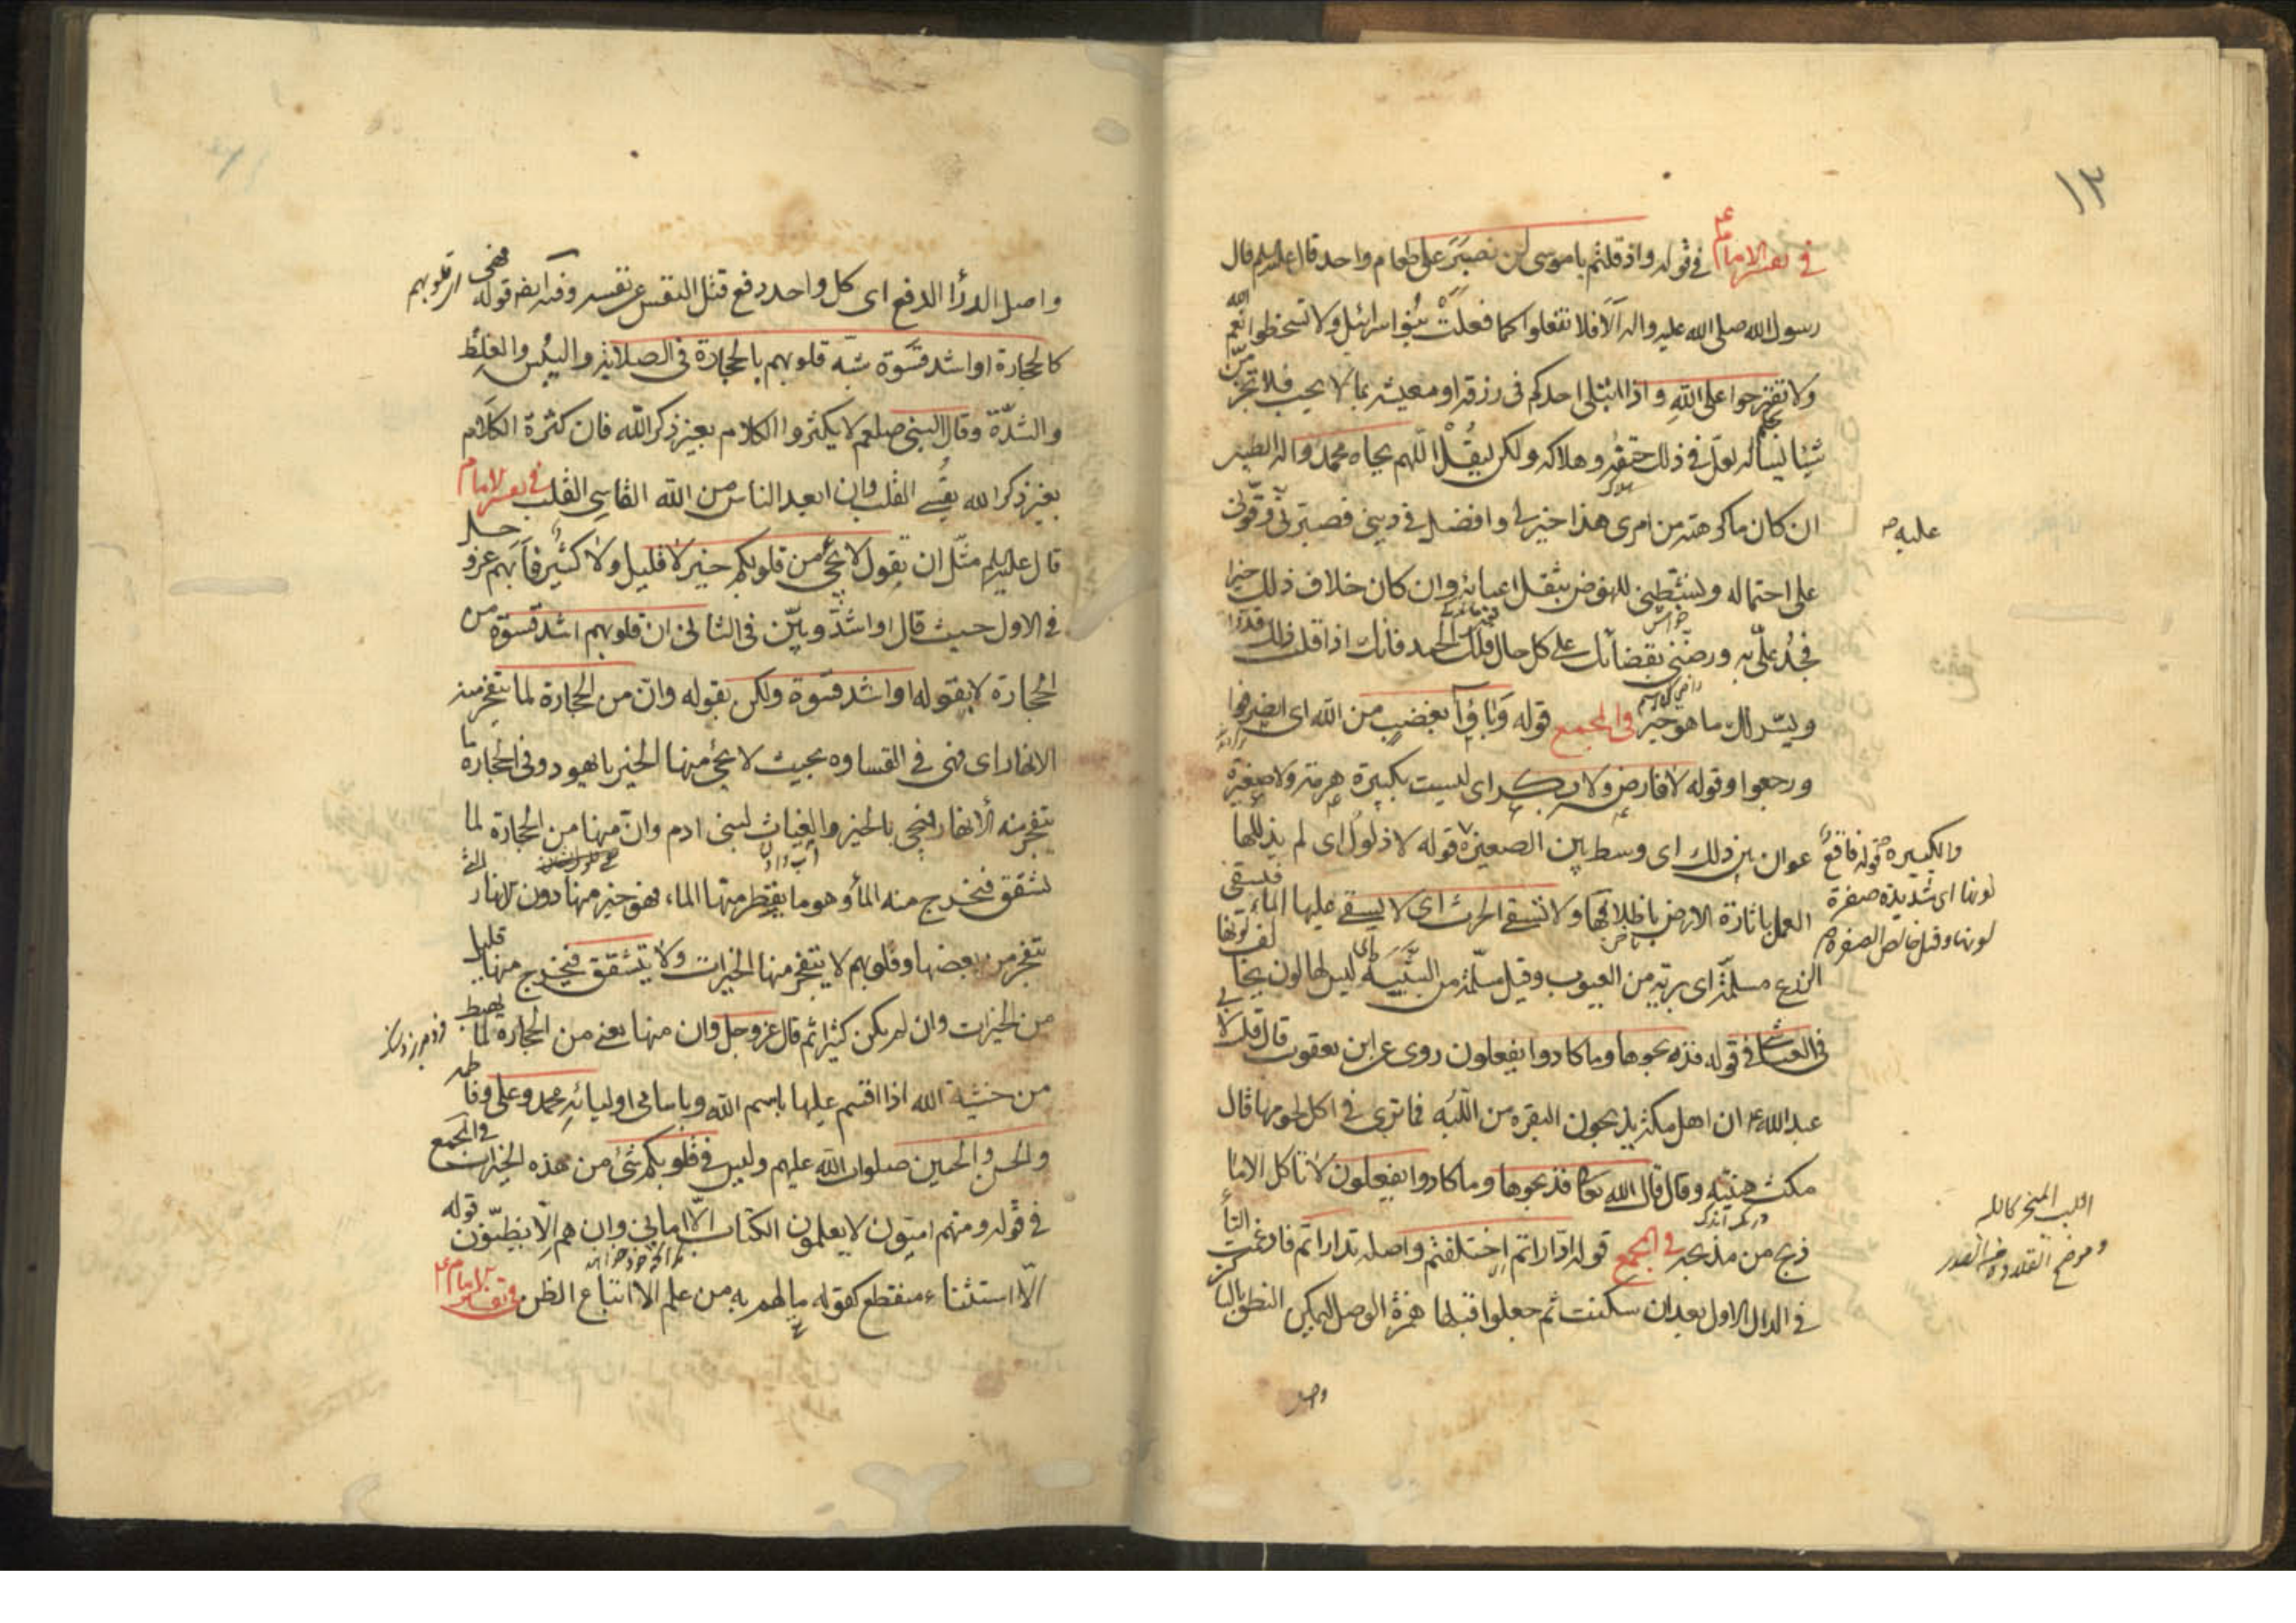 ١٣
في تفسير الامام ع في قوله واذ قلتم يا موسى لن نصبر على طعام واحد قال عليه السلم قال
رسول الله صلى الله عليه واله الا فلا تفعلوا كما فعلت بنو اسرائيل ولا تسخطوا نعم الله
ولا تقترحوا على الله واذا ابتلى احدكم في رزقه او معيشته بما لا يحب فلا
شيئا يسأله لعل في ذلك حتفه وهلاكه ولكن ليقل اللهم بجاه محمد واله الطيبين
ان كان ما كرهته من امرى هذا خيرا لي وافضل في ديني فصبرني عليه وقوني
على احتماله ونشطني للنهوض بثقل اعبائه وان كان خلاف ذلك خيرا
فجد علي به ورضني بقضائك على كل حال فلك الحمد فانك اذا قلت ذلك قدر الله
ويسر لك ما هو خير في المجمع قوله وباؤا بغضب من الله اى انصرفوا
ورجعوا وقوله لا فارض ولا بكر اى ليست بكبيرة هرمة ولا صغيرة
عوان بين ذلك اى وسط بين الصغيرة والكبيرة قوله فاقع لونها اى شديدة صفرة لونها وقيل خالص الصفرة قوله لا ذلول اى لم يذللها
العمل باثارة الارض باظلافها ولا تسقي الحرث اى لا يستقى عليها الماء فيسقى
الزرع مسلمة اى برية من العيوب وقيل مسلمة من الشية ليس لها لون يخالف لونها
في العياشي في قوله فذبحوها وما كادوا يفعلون روى عن ابن يعقوب قال قلت لابي
عبد الله ع ان اهل مكة يذبحون البقرة من اللبه فما ترى في اكل لحومها قال
مكث هنيئة وقال قال الله تعا فذبحوها وما كادوا يفعلون لا تاكل الا ما
ذبح من مذبحه في المجمع قوله ادارأتم اختلفتم واصله تدارأتم فادغمت التأ
في الدال الاول بعد ان سكنت ثم جعلوا قبلها همزة الوصل ليمكن النطق بالساكن
واصل
اللبب المنحر كاللبه
وموضع القلادة من الصدر
واصل الدرأ الدفع اى كل واحد دفع قتل النفس عن نفسه وفيه ايضا قوله فهى
كالحجارة او اشد قسوة شبه قلوبهم بالحجارة في الصلابة واليبس والغلظ
والشدة وقال النبي صلعم لا يكثروا الكلام بغير ذكر الله فان كثرة الكلام
بغير ذكر الله يقسي القلب وان ابعد الناس من الله القاسي القلب في تفسير الامام
قال عليه السلم مثل ان يقول لا يجئ من قلوبكم خير لا قليل ولا كثير فابهم عز وجل
في الاول حيث قال او اشد وبين في الثاني ان قلوبهم اشد قسوة من
الحجارة لا بقوله او اشد قسوة ولكن بقوله وان من الحجارة لما يتفجر منه
الانهار اى فهي في القساوه بحيث لا يجئ منها الخير يا يهود وفي الحجارة ما
يتفجر منه الانهار فيجى بالخير والغياث لبني ادم وان منها من الحجارة لما
تشقق فيخرج منه الماء وهو ما يقطر منها الماء فهو خير منها دون الانهار التي
تتفجر من بعضها وقلوبهم لا يتفجر منها الخيرات ولا تشقق فيخرج منها قليل
من الخيرات وان لم يكن كثيرا ثم قال عز وجل وان منها يعنى من الحجارة لما يهبط
من خشية الله اذا اقسم عليها باسم الله وباسامى اوليائه محمد وعلى وفاطمه
والحسن والحسين صلوات الله عليهم وليس في قلوبكم شئ من هذه الخيرات في المجمع
في قوله ومنهم اميون لا يعلمون الكتاب الا امانى وان هم الا يظنون قوله
الا استثناء منقطع كقوله ما لهم به من علم الا اتباع الظن في تفسير الامام ع